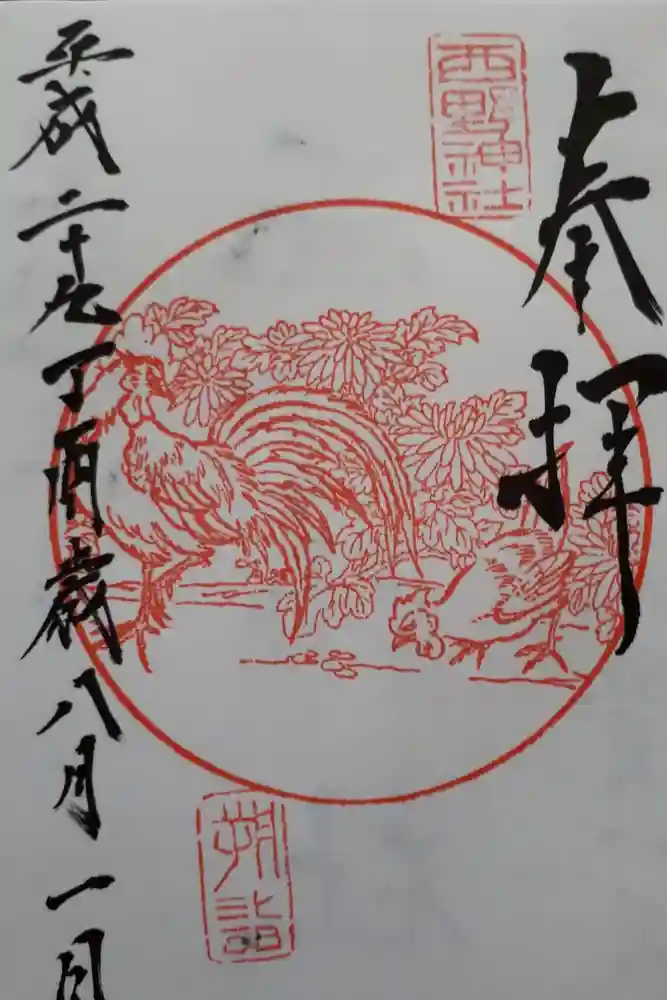 奉拝
西野神社
朔詣
平成二十九丁酉歳八月一日